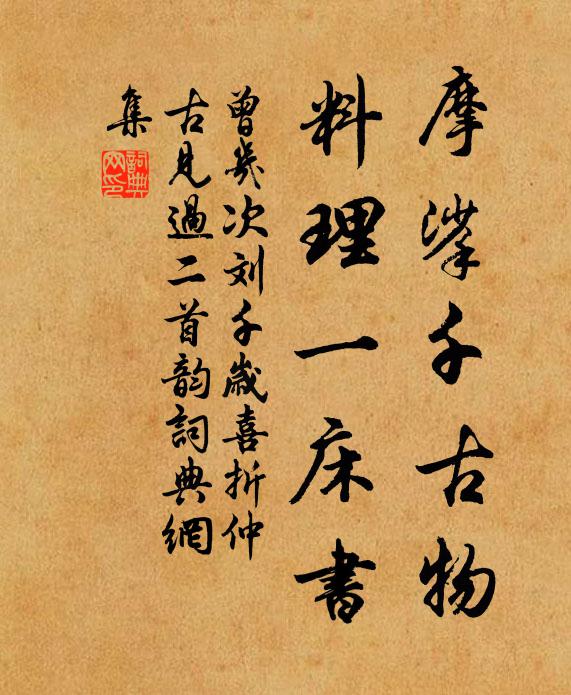 摩挲千古物
料理一床書
曾幾次刘千歲喜折仲
古見過二首韵詞典網
集
詞典網印